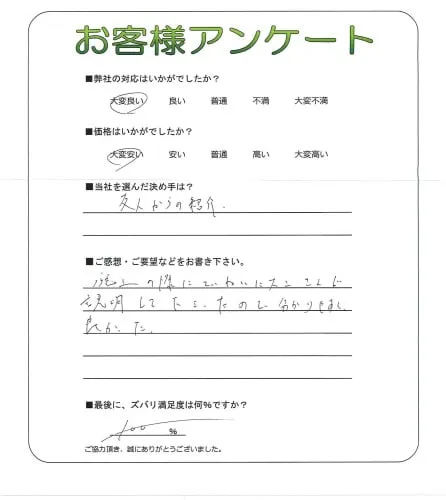 お客様アンケート
■弊社の対応はいかがでしたか？
大変良い 良い 普通 不満 大変不満
■価格はいかがでしたか？
大変安い 安い 普通 高い 大変高い
■当社を選んだ決め手は？
友人からの紹介.
■ご感想・ご要望などをお書き下さい。
施工の際にていねいに大工さんが
説明して下さったので分かりやすく
良かった.
■最後に、ズバリ満足度は何％ですか？
100 %
ご協力頂き、誠にありがとうございました。